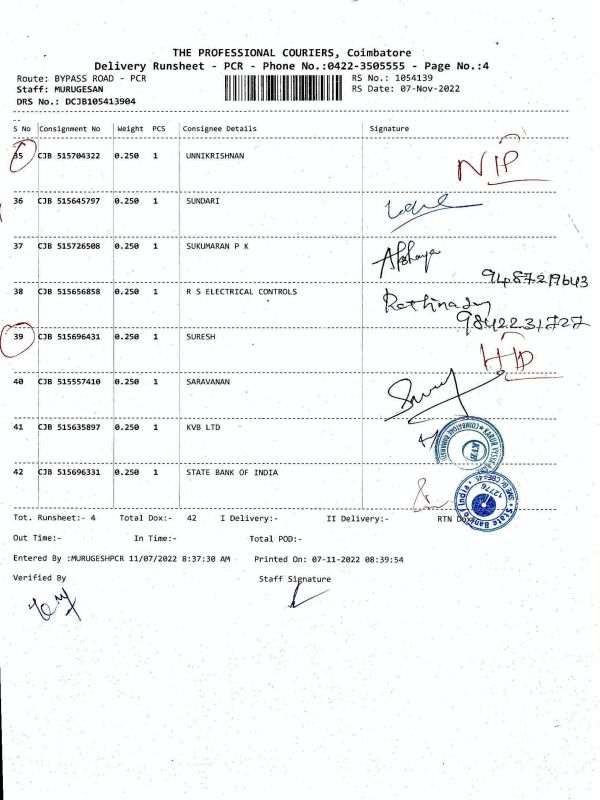 THE PROFESSIONAL COURIERS, Coimbatore
Delivery Runsheet - PCR - Phone No.:0422-3505555 - Page No.:4
Route: BYPASS ROAD - PCR RS No.: 1054139
Staff: MURUGESAN RS Date: 07-Nov-2022
DRS No.: DCJB105413904
S No Consignment No Weight PCS Consignee Details Signature
35 CJB 515704322 0.250 1 UNNIKRISHNAN NIP
36 CJB 515645797 0.250 1 SUNDARI
37 CJB 515726508 0.250 1 SUKUMARAN P K
9487219643
38 CJB 515656858 0.250 1 R S ELECTRICAL CONTROLS
9842231727
39 CJB 515696431 0.250 1 SURESH
40 CJB 515557410 0.250 1 SARAVANAN
41 CJB 515635897 0.250 1 KVB LTD
42 CJB 515696331 0.250 1 STATE BANK OF INDIA
Tot. Runsheet:- 4 Total Dox:- 42 I Delivery:- II Delivery:- RTN Dox:-
Out Time:- In Time:- Total POD:-
Entered By :MURUGESHPCR 11/07/2022 8:37:30 AM Printed On: 07-11-2022 08:39:54
Verified By Staff Signature